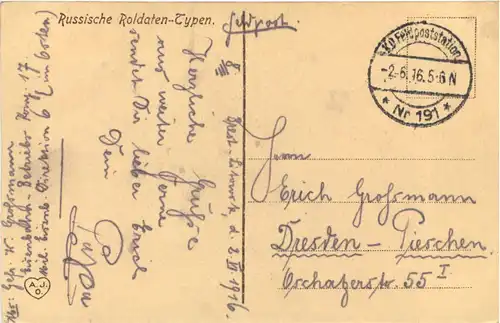 Russische Soldaten-Typen.
Feldpost.
K.D. Feldpoststation
-2.6.16. 5-6 N
* Nr 191 *
Brest-Litowsk, d. 2. VI 1916.
Herzliche Grüsse
aus weiter Ferne
sendet Dir lieber Erich
Dein
Papa
Abs: Gefr. K. Grossmann
Eisenbahn-Betriebs Komp. 17
Mil. Eisenb. Direktion 6 (im Osten)
A.J.
O.
Herrn
Erich Grossmann
Dresden - Pieschen
Oschatzerstr. 55 I